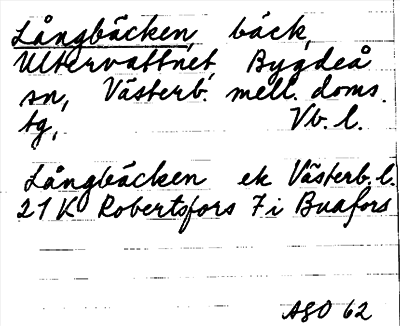 Långbäcken, bäck,
Ultervattnet, Bygdeå
sn, Västerb. mell. doms.
tg, Vb. l.
Långbäcken ek Västerb. l.
21 K Robertsfors 7 i Buafors
ASO 62